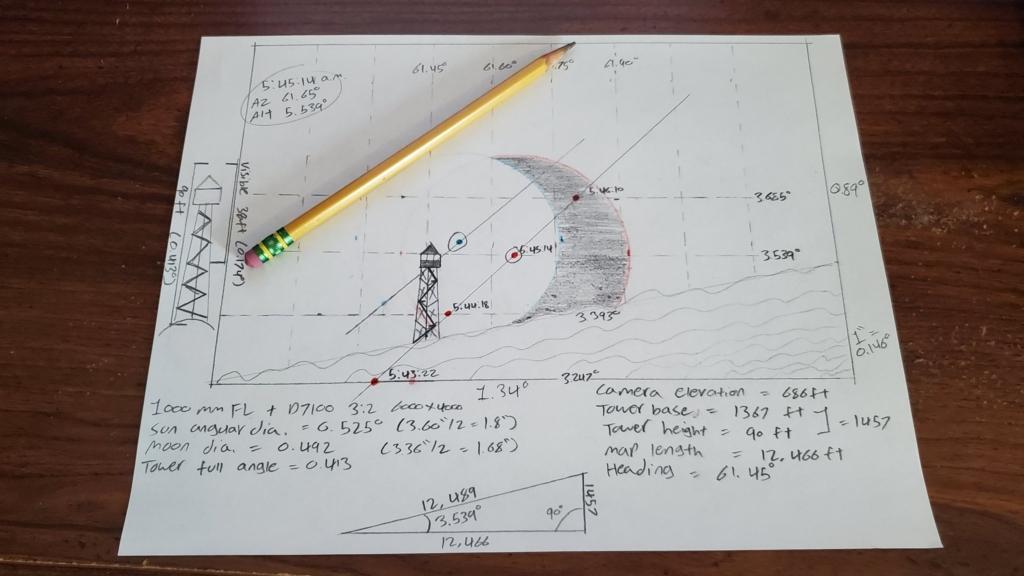 5:45:14 a.m.
AZ 61.65°
Alt 5.539°
61.45°
61.60°
.75°
61.90°
90 ft (0.413°)
Visible 38ft (0.174°)
5:46:10
3.685°
0.89°
5:45:14
3.539°
5:44:18
3.393°
1" =
0.146°
5:43:22
1.34°
3.247°
1000 mm FL + D7100 3:2 6000x4000
Sun angular dia. = 0.525° (3.60"/2 = 1.8")
Moon dia. = 0.492 (3.36"/2 = 1.68")
Tower full angle = 0.413
Camera elevation = 686ft
Tower base = 1367 ft
Tower height = 90 ft
= 1457
map length = 12,466 ft
Heading = 61.45°
12,489
3.539°
90°
1457
12,466